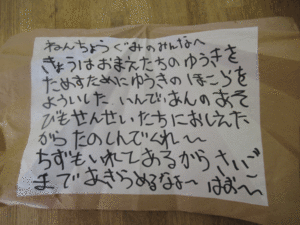 ねんちょうぐみのみんなへ
きょうはおまえたちのゆうきを
ためすためにゆうきのほこらを
よういした いんであんのあそ
びもせんせいたちにおしえた
からたのしんでくれ〜
ちずもいれてあるからさいご
まであきらめるなよ〜 はお〜